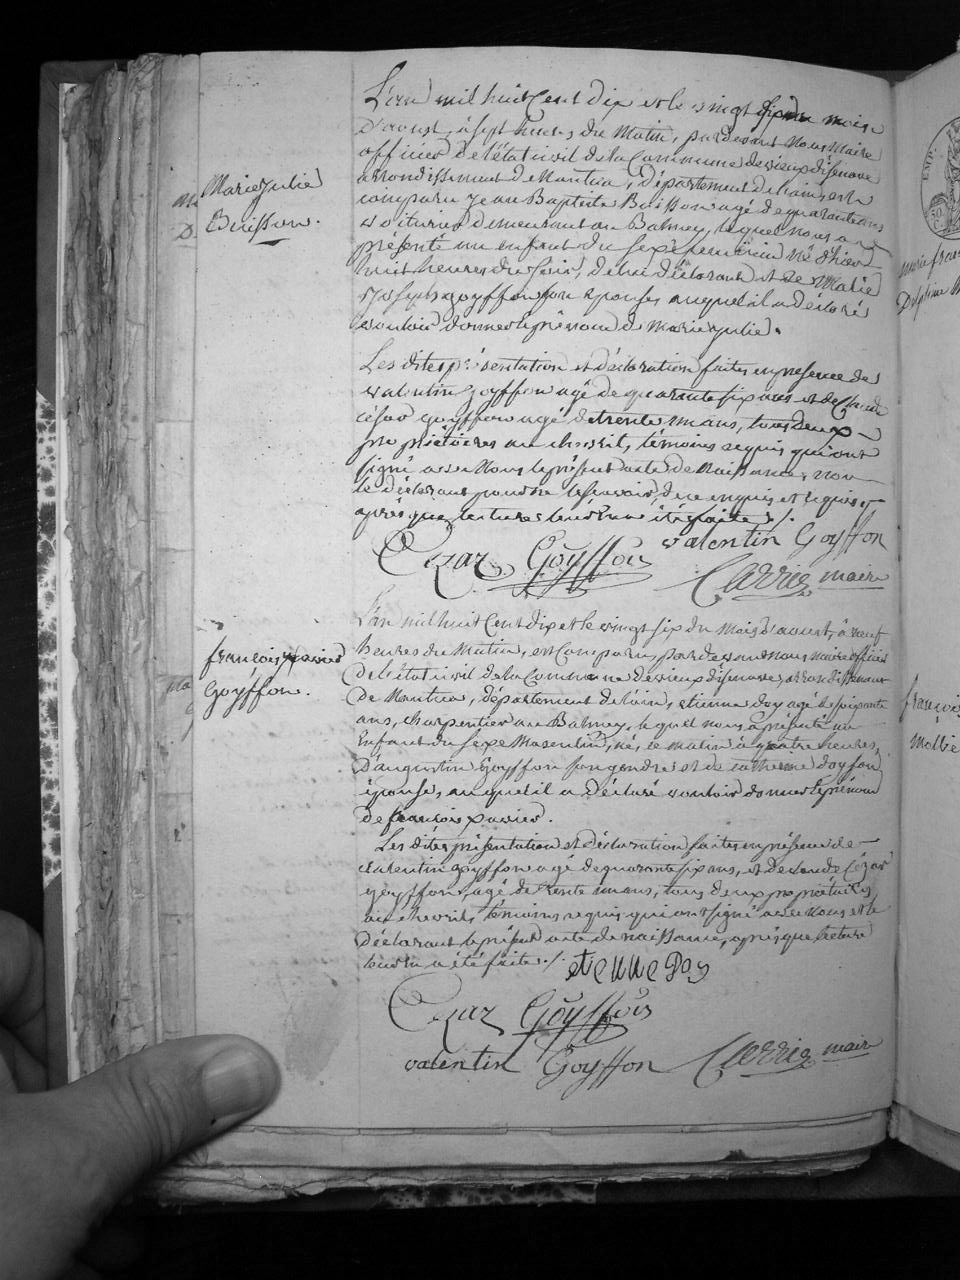 Marie Julie
Buisson.
L'an mil huit Cent dix et le vingt six du mois
d'aoust, à sept heures du Matin, pardevant Nous Maire
officier de l'état civil de la Commune de vieux disenave
arrondissement de Nantua, département de l'ain, est
comparu Jean Baptiste Buisson agé de quarante ans
voiturier demeurant au Balmey, lequel nous a
présenté un enfant du Sexe feminin né d'hier
huit heures du soir, de lui déclarant et de Marie
Joseph goyffon son épouse, auquel il a déclaré
vouloir donner le prénom de Marie Julie.
Les dites présentation et déclaration faites en presence de
valentin Goyffon agé de quarante six ans et de Claude
césar goyffon agé de trente un ans, tous deux
propriétaires au chevril, témoins requis qui ont
signé avec Nous le présent acte de Naissance, non
le déclarant pour ne le savoir, de ce enquis et requis,
après que lecture leur en a été faite ./.
Cezar Goÿffon valentin Goyffon
Carrier maire
françois xavier
Goÿffon.
L'an mil huit Cent dix et le vingt six du Mois d'aoust, à neuf
heures du Matin, est Comparu, pardevant nous maire officier
de l'état civil de la Commune de vieux disenave, arrondissement
de Nantua, département de l'ain, etienne doy agé de soixante
ans, charpentier au Balmey, lequel nous a présenté un
Enfant du Sexe Masculin, né, ce matin à quatre heures,
d'augustin Goyffon son gendre et de Catherine doy son
épouse, auquel il a déclaré vouloir donner le prénom
de françois xavier.
Les dites présentation et déclaration faites en présence de
valentin goyffon agé de quarante six ans, et de Claude Cézar
goyffon, agé de trente un ans, tous deux propriétaires
au chevril, témoins requis qui ont signé avec Nous et le
Déclarant le présent acte de naissance, après que lecture
leur en a été faite ./. etienne Doy
Cezar Goÿffon
valentin Goyffon Carrier maire
EMP.
marie fran
Delphine
françois
Molliè